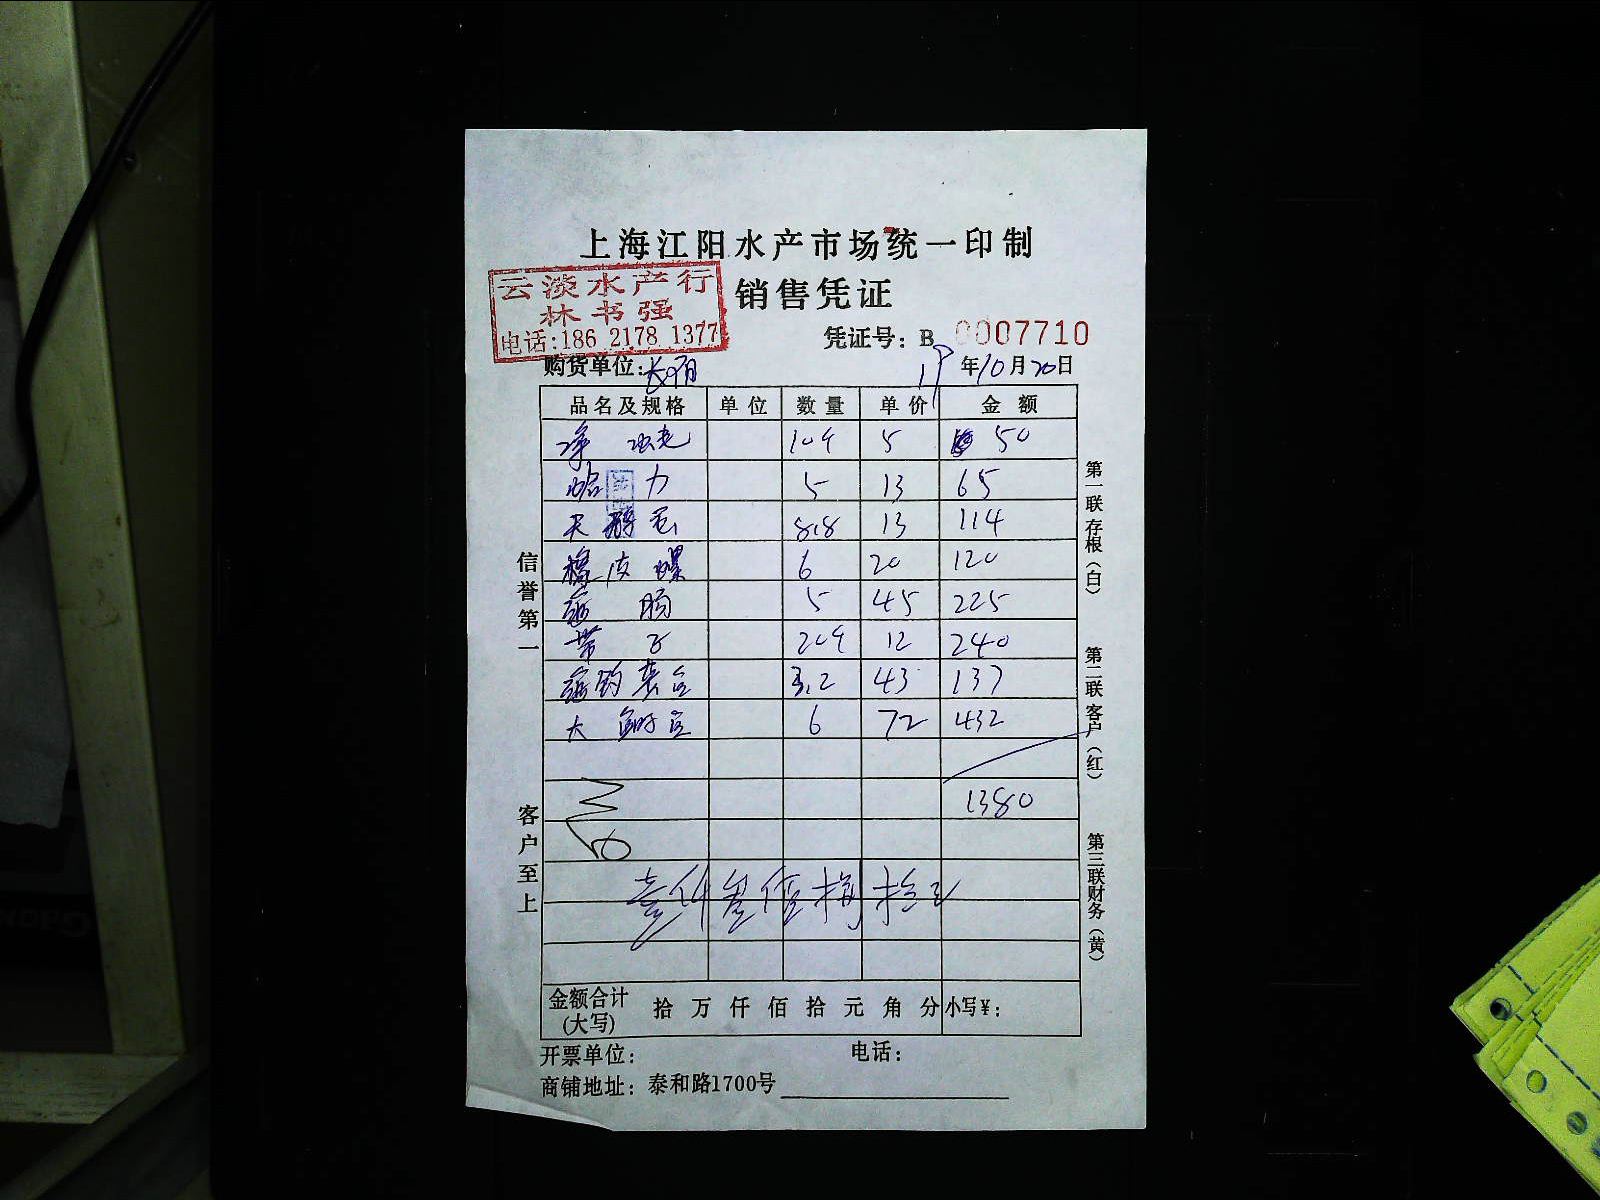 上海江阳水产市场统一印制
云淡水产行
林书强
电话:186 2178 1377
销售凭证
凭证号: B 0007710
购货单位: 19年10月20日
品名及规格 单位 数量 单价 金额
净 5 50
哈 力 5 13 65
天鹅蛋 8.8 13 114
橡皮螺 6 20 120
肠 5 45 225
带子 12 240
3.2 43 137
大 6 72 432
1380
壹仟叁佰捌拾元
金额合计(大写) 拾 万 仟 佰 拾 元 角 分 小写¥:
开票单位: 电话:
商铺地址: 泰和路1700号
信誉第一
客户至上
第一联存根(白)
第二联客户(红)
第三联财务(黄)